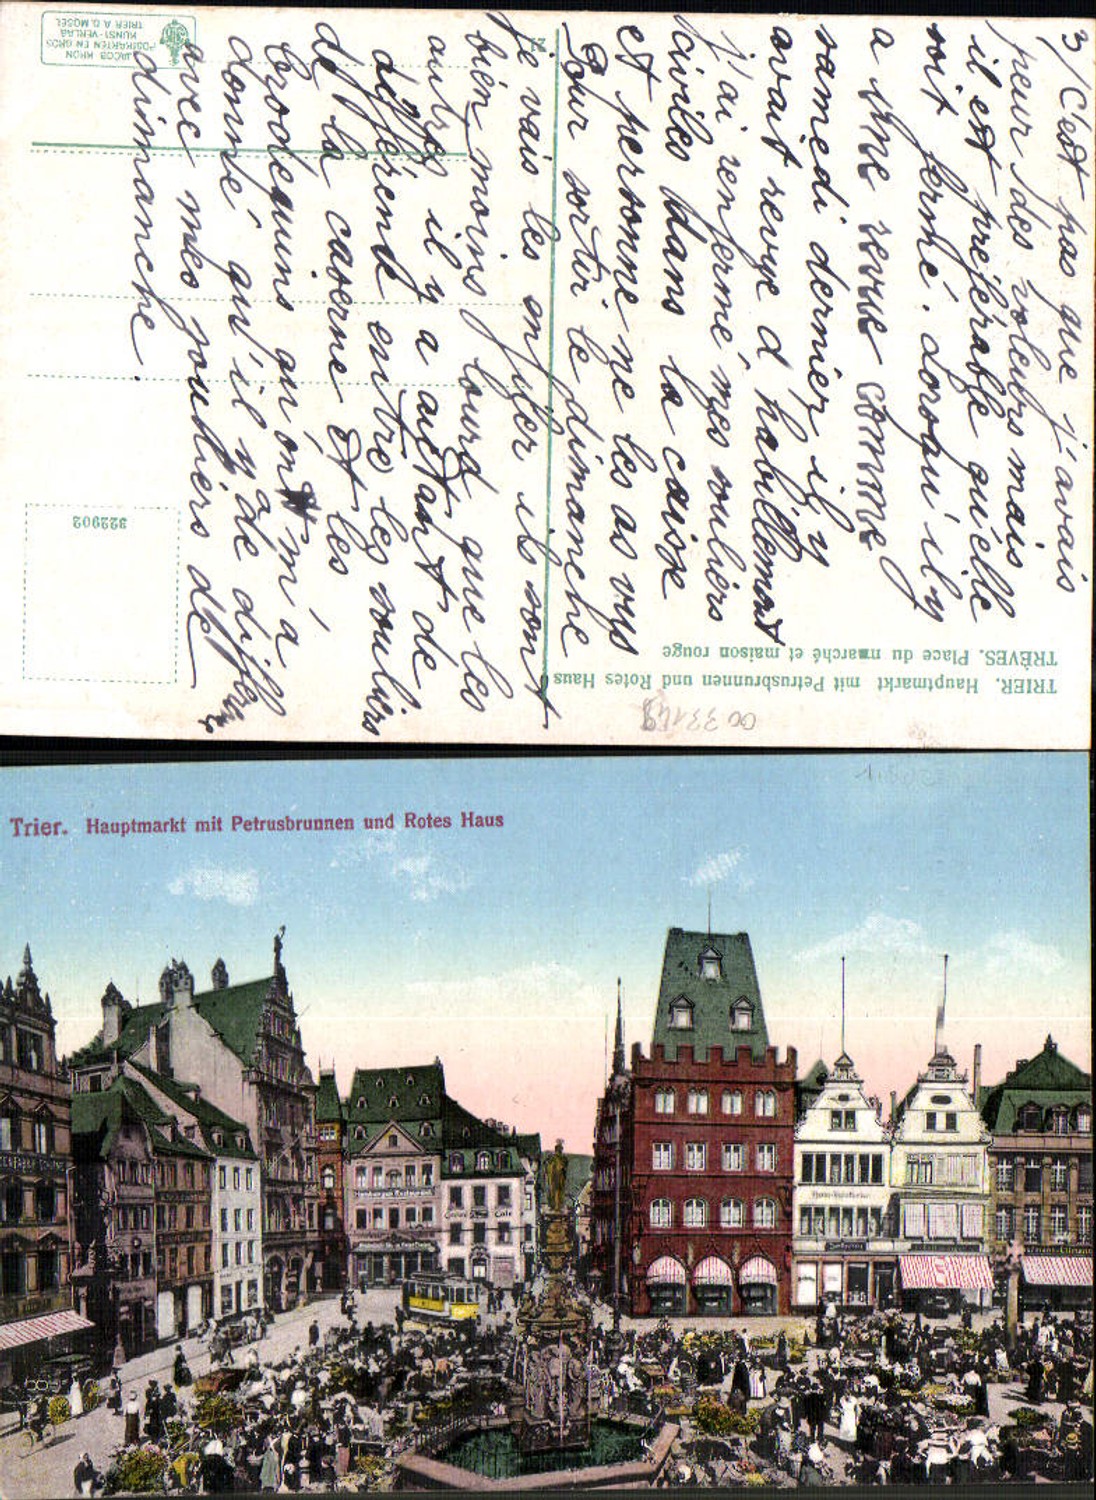 3/ C'est pas que j'avais
peur des voleurs mais
il est préférable qu'elle
soit fermé. Lorsqu'il y
a une revue comme
samedi dernier il y
avait revue d'habillement
j'ai renfermé mes souliers
civiles dans la caisse
et personne ne les as vus
Pour sortir le dimanche
je vais les enfiler ils sont
bien moins lourd que les
autres il y a autant de
différence entre les souliers
de la caserne et les
brodequins qu'on m'a
donné qu'il y a de différence
avec mes souliers de
dimanche.
TRIER. Hauptmarkt mit Petrusbrunnen und Rotes Haus
TRÈVES. Place du marché et maison rouge
JACOB KRON
POSTKARTEN EN GROS
KUNST-VERLAG
TRIER A. D. MOSEL
21
322902
Trier. Hauptmarkt mit Petrusbrunnen und Rotes Haus